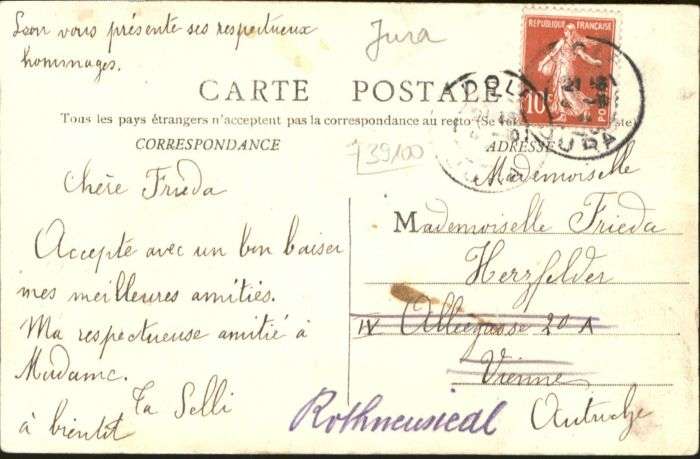 Léon vous présente ses respectueux
hommages.
Jura
REPUBLIQUE FRANÇAISE
10
POSTES
CARTE POSTALE
Tous les pays étrangers n'acceptent pas la correspondance au recto (Se
CORRESPONDANCE
ADRESSE
739/00
Chère Frieda
Accepte avec un bon baiser
mes meilleures amitiés.
Ma respectueuse amitié à
Madame.
Ta Selli
à bientôt
Mademoiselle
Mademoiselle Frieda
Herzfelder
IV Alleegasse 20 A
Vienne
Rothneusiedl
Autriche